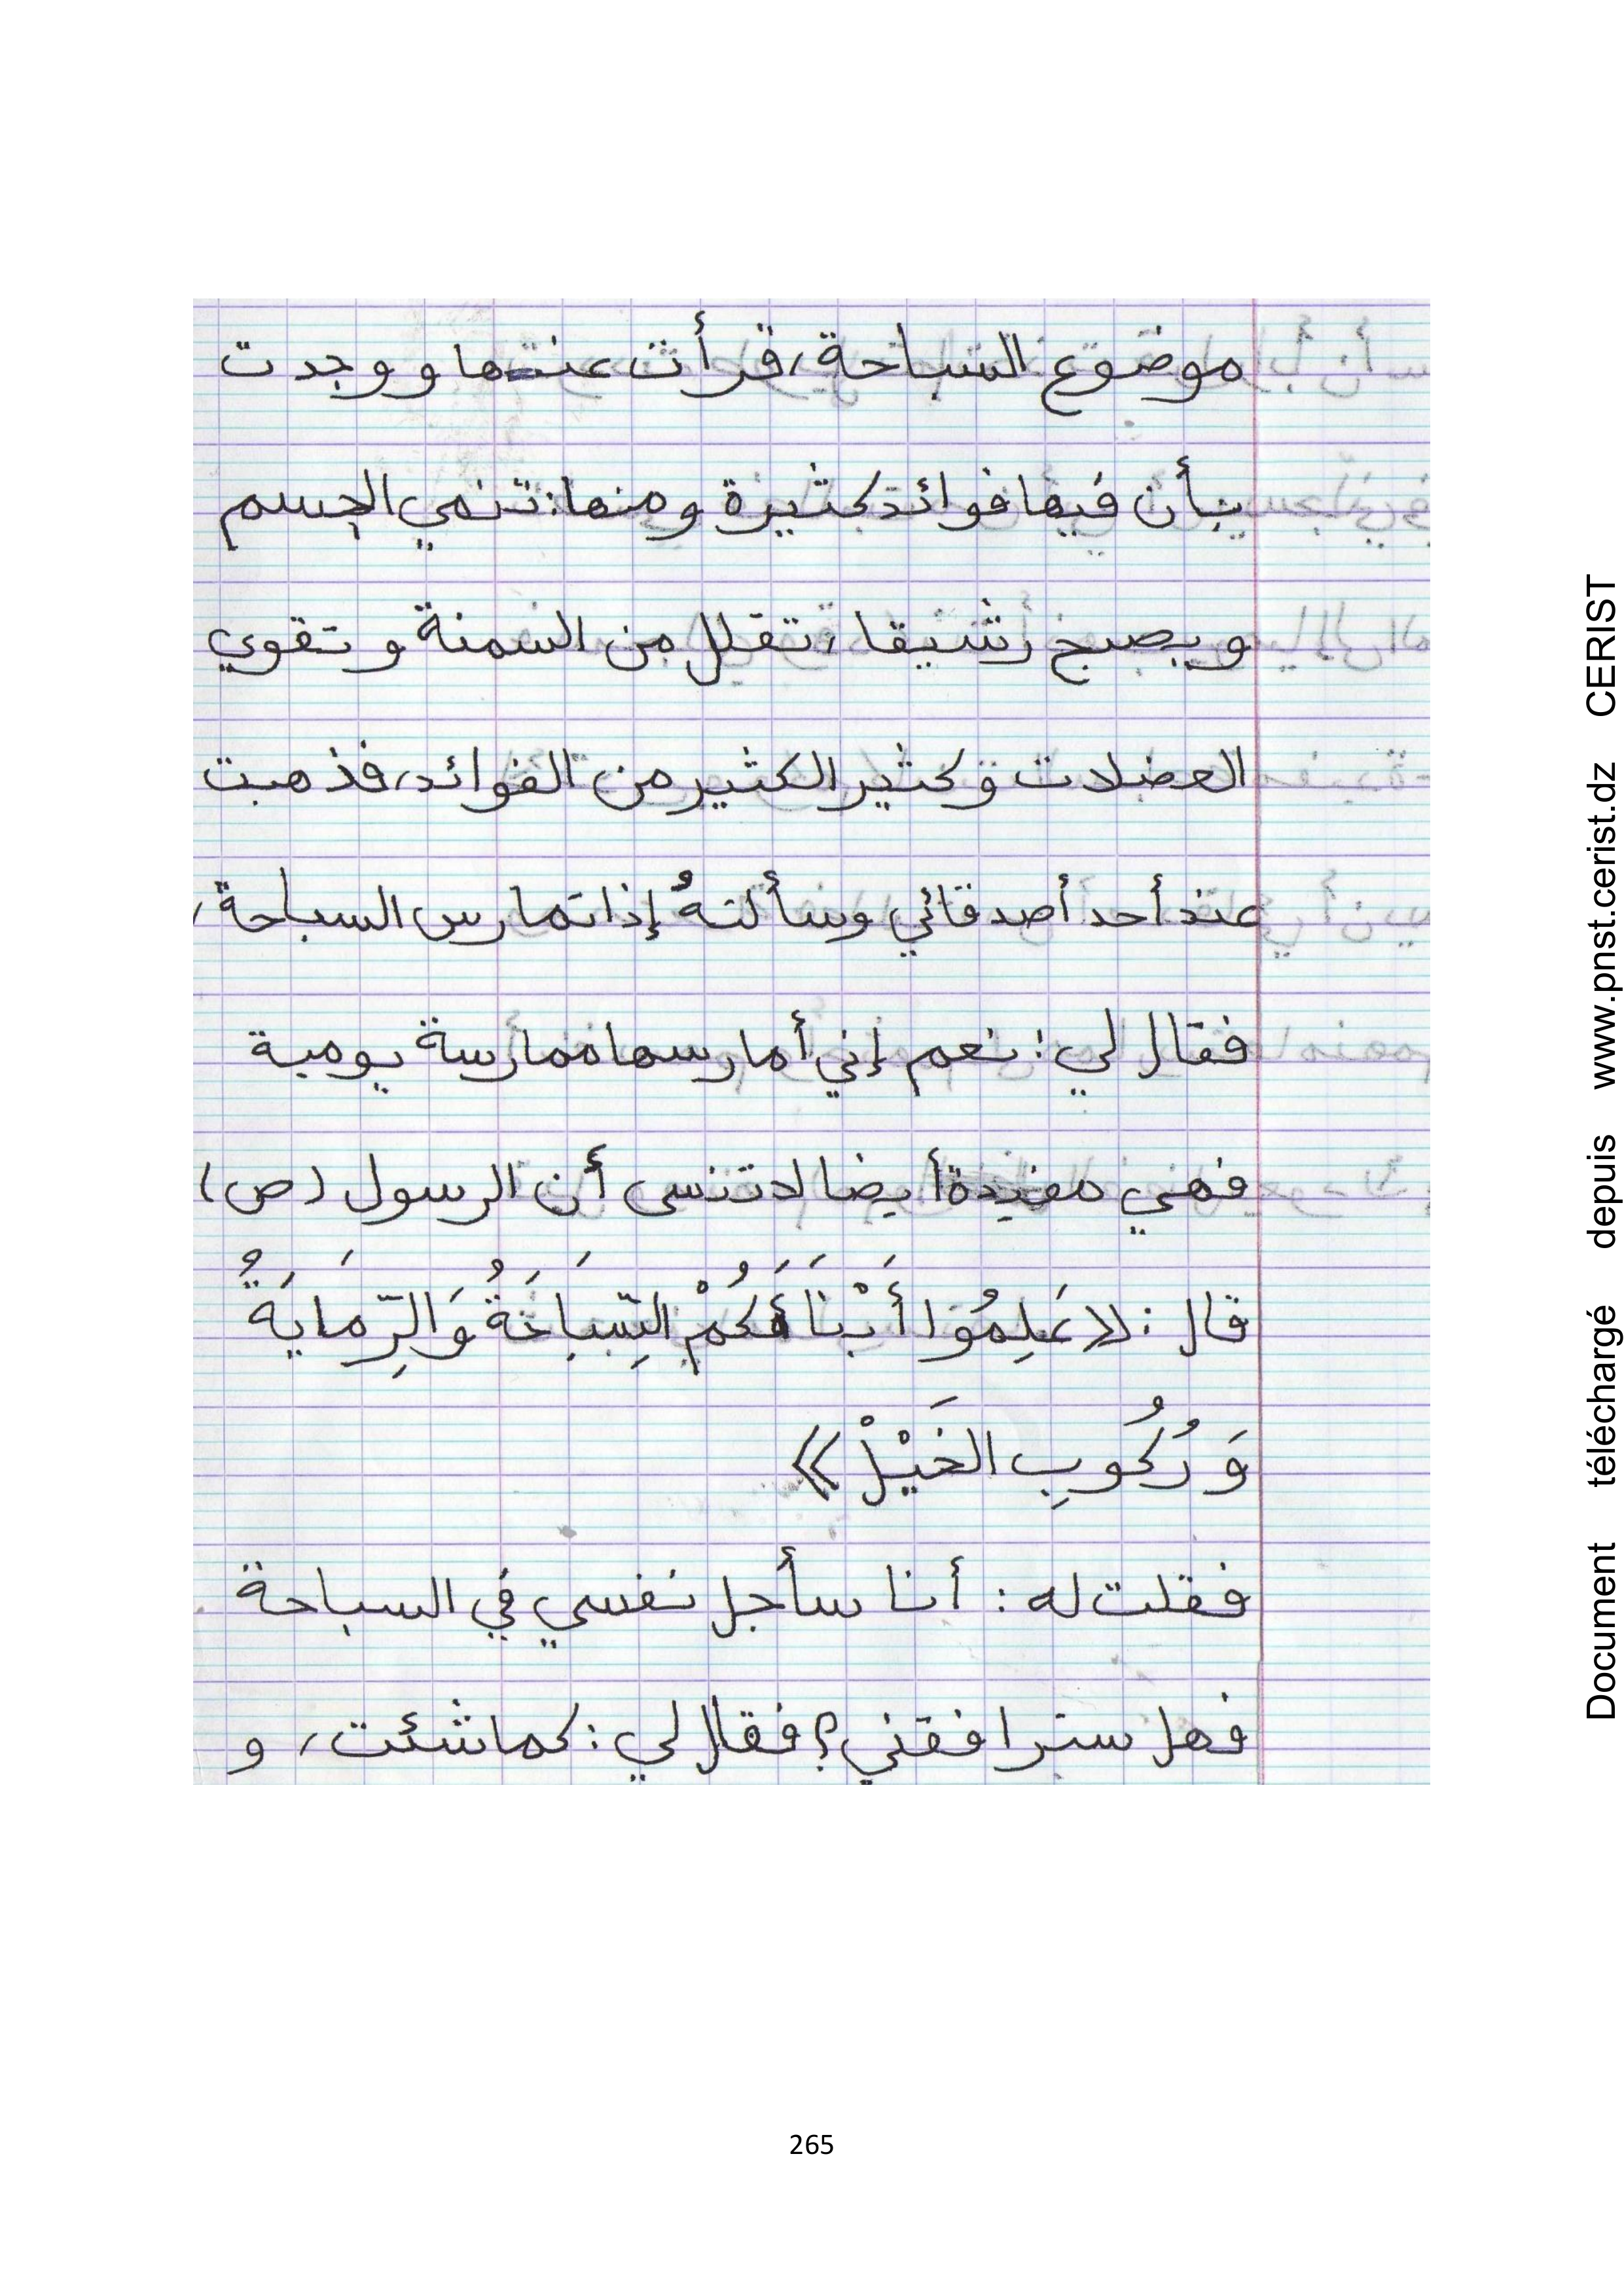 موضوع السباحة، قرأت عنها ووجدت
بأن فيها فوائد كثيرة ومنها: تنمي الجسم
ويصبح رشيقا، تقلل من السمنة وتقوي
العضلات وكثير الكثير من الفوائد، فذهبت
عند أحد أصدقائي وسألتهُ إذا تمارس السباحة،
فقال لي: نعم إني أمارسها ممارسة يومية
فهي مفيدة أيضا لا تنسى أن الرسول (ص)
قال: «عَلِمُوا أَبْنَاءَكُمْ السِّبَاحَةُ وَالرِّمَايَةُ
وَرُكُوبِ الخَيْلْ»
فقلت له: أنا سأجل نفسي في السباحة
فهل سترافقني؟ فقال لي: كما شئت، و
265
Document téléchargé depuis www.pnst.cerist.dz CERIST